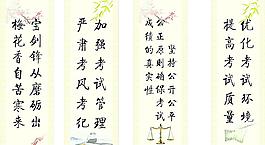 宝剑锋从磨砺出
梅花香自苦寒来
加强考试管理
严肃考风考纪
坚持公开公平
公正原则确保考试
成绩的真实性
优化考试环境
提高考试质量